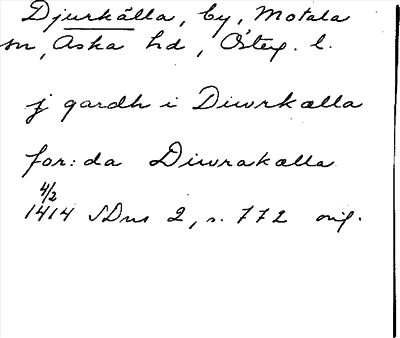 Djurkälla, by, Motala
sn, Aska hd, Östg. l.
j gardh i Diwrkælla
for:da Diwrakælla
4/2
1414 SDns 2, s. 772 orig.